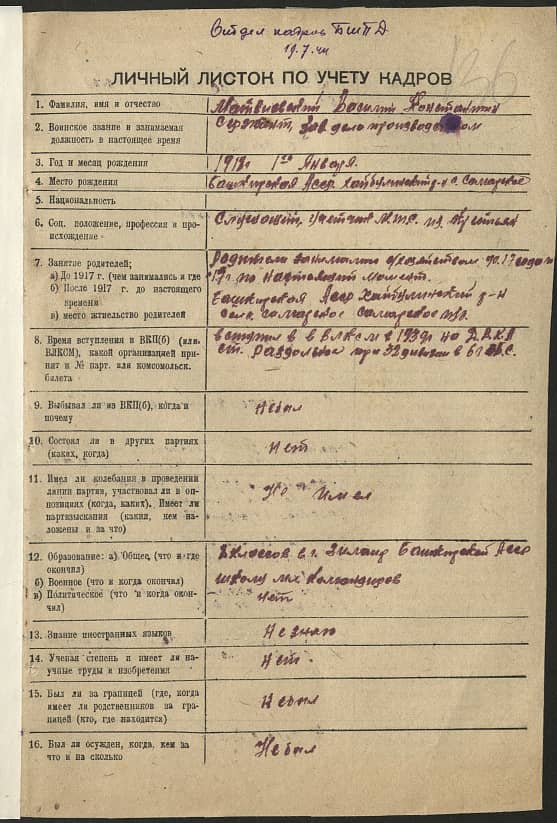 Отдел кадров БШПД
19.7.44
136
ЛИЧНЫЙ ЛИСТОК ПО УЧЕТУ КАДРОВ
1. Фамилия, имя и отчество
Матвиевский Василий Константин
2. Воинское звание и занимаемая
должность в настоящее время
Сержант, Зав делопроизводством
3. Год и месяц рождения
1918г 1го Января.
4. Место рождения
Башкирская Асср Хайбулинский р-н с. Самарское
5. Национальность
6. Соц. положение, профессия и про-
исхождение
Служащий, Учетчик М.Т.С. из Крестьян
7. Занятие родителей;
а) До 1917 г. (чем занимались и где
б) После 1917 г. до настоящего
времени
в) место жтиельство родителей
Родители занимались с/хозяйством до 17 года и
по настоящий момент.
Башкирская Асср Хайбулинский р-н
село Самарское Самарское
8. Время вступления в ВКП(б) (или
ВЛКСМ), какой организацией при-
нят и № парт. или комсомольск.
билета
вступил в ВЛКСМ в 1939г на Д.В.К.
ст. Раздольное при 32 дивизии
9. Выбывал ли из ВКП(б), когда и
почему
Небыл
10. Состоял ли в других партиях
(каких, когда)
Нет
11. Имел ли колебания в проведении
линии партии, участвовал ли в оп-
позициях (когда, каких). Имеет ли
партвзыскания (какия, кем на-
ложены и за что)
Не Имел
12. Образование: а) Общее, (что и где
окончил)
б) Военное (что и когда окончил)
в) Политическое (что и когда окон-
чил)
классов в г. Зилаир Башкирской Асср
школу мл. Командиров
Нет
13. Знание иностранных языков
Незнаю
14. Ученая степень и имеет ли на-
учные труды и изобретения
Нет.
15. Был ли за границей (где, когда
имеет ли родственников за гра-
ницей (кто, где находится)
Небыл
16. Был ли осужден, когда, кем за
что и на сколько
Небыл